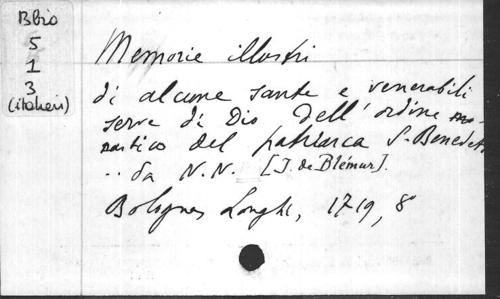 Bbio
5
1
3
(italien)
Memorie illustri
di alcune sante e venerabili
serve di Dio dell'ordine mo-
nastico del patriarca S. Benedett
.. da N.N. [J. de Blémur].
Bologna, Longhi, 1719, 8°